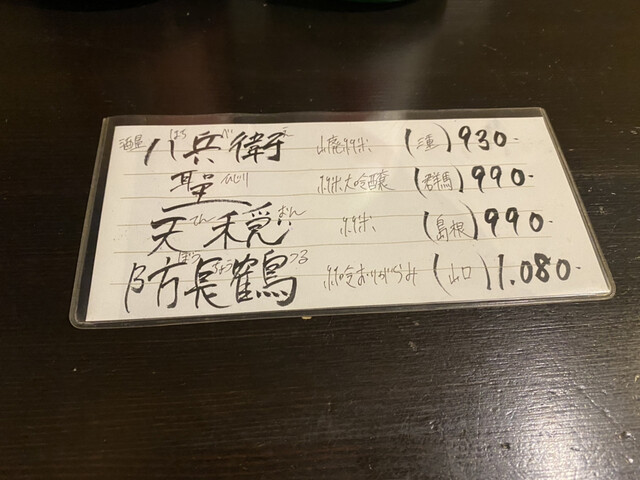 酒屋八兵衛 はちべえ 山廃純米 (三重) 930-
聖 ひじり 純米大吟醸 (群馬) 990-
天穏 てんおん 純米 (島根) 990-
防長鶴 ぼうちょうつる 純吟おりがらみ (山口) 1.080-